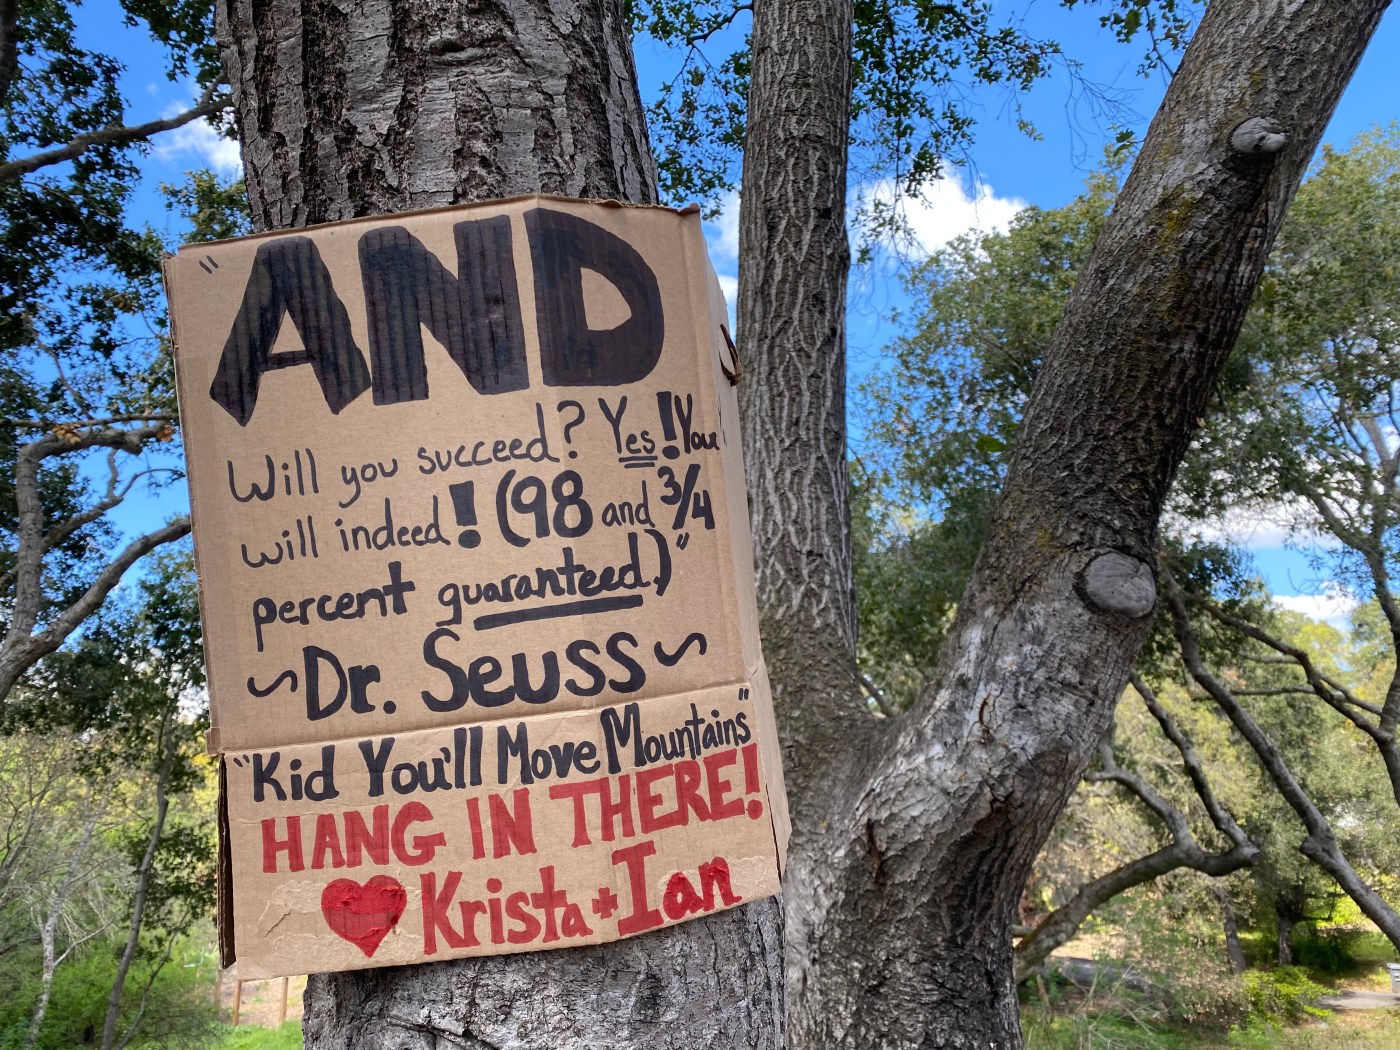 "AND
Will you succeed? Yes! You
will indeed! (98 and 3/4
percent guaranteed.)"
~Dr. Seuss~
"Kid You'll Move Mountains"
HANG IN THERE!
♥ Krista + Ian